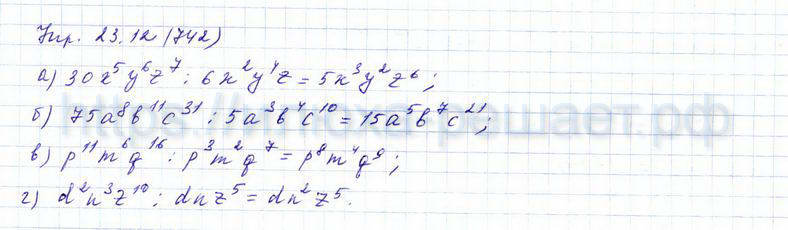 Упр. 23.12 (742)
а) 30x⁵y⁶z⁷ : 6x²y⁴z = 5x³y²z⁶;
б) 75a⁸b¹¹c³¹ : 5a³b⁴c¹⁰ = 15a⁵b⁷c²¹;
в) p¹¹m⁶q¹⁶ : p³m²q⁷ = p⁸m⁴q⁹;
г) d²n³z¹⁰ : dnz⁵ = dn²z⁵.